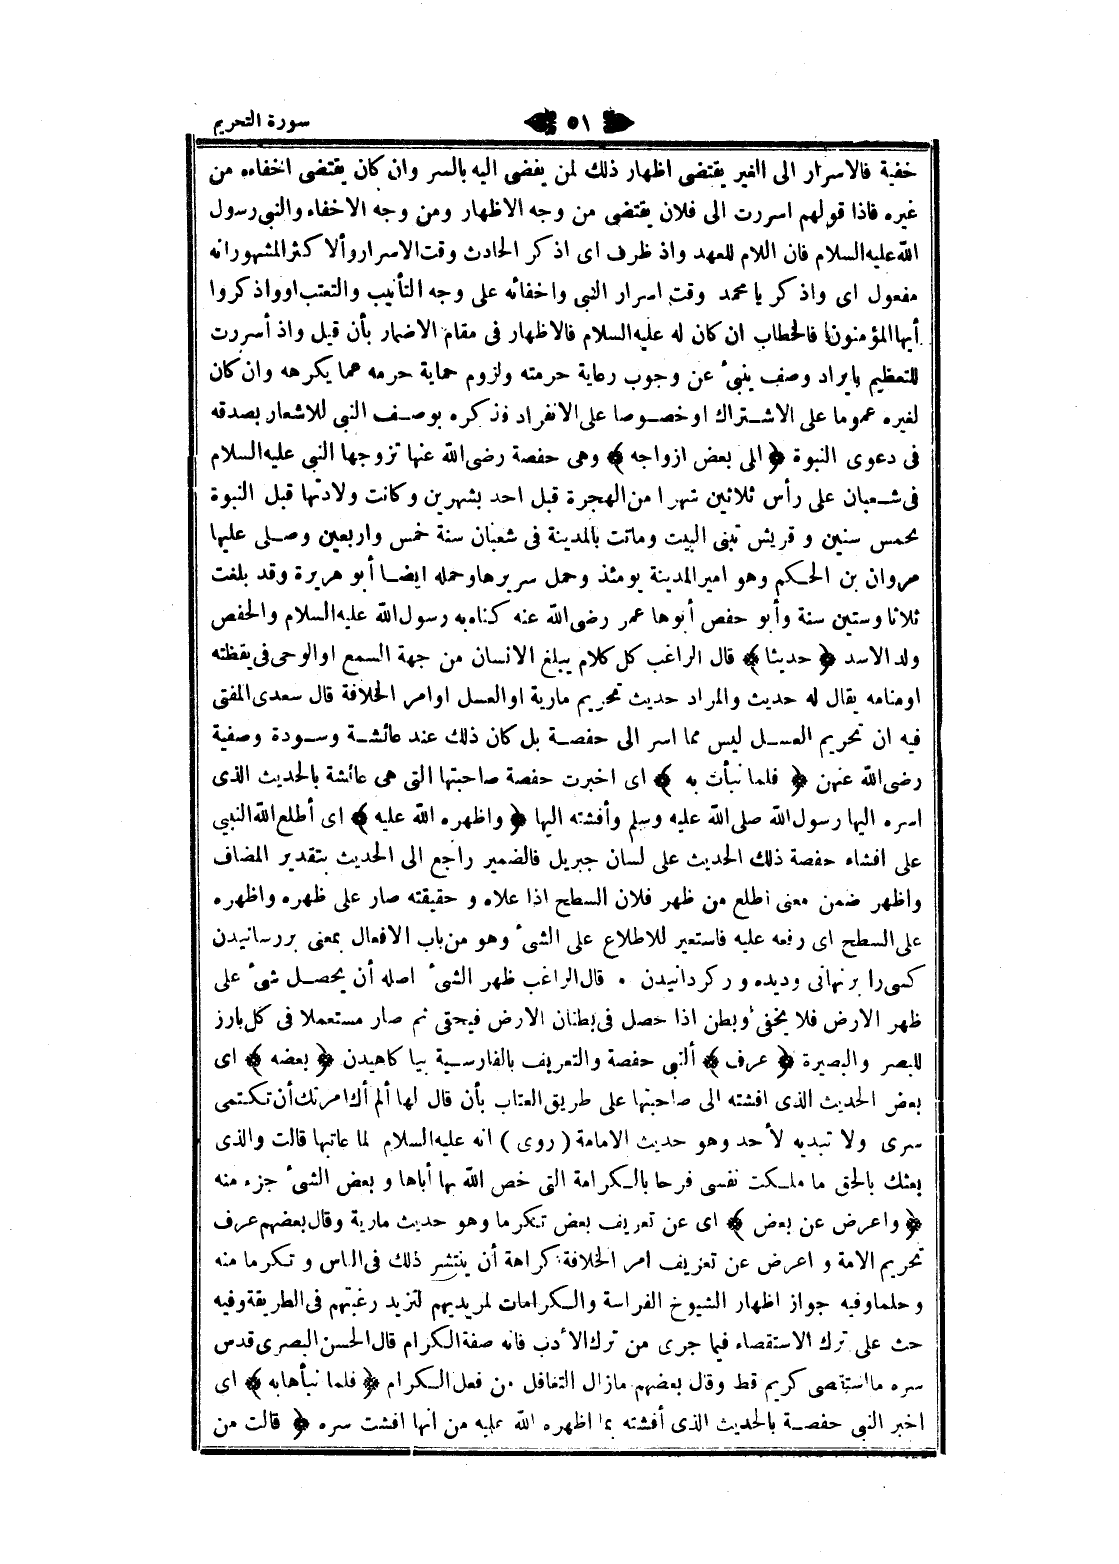 سورة التحريم
٥١
خفية فالاسرار الى الغير يقتضى اظهار ذلك لمن يفضى اليه بالسر وان كان يقتضى اخفاءه من
غيره فاذا قولهم اسررت الى فلان يقتضى من وجه الاظهار ومن وجه الاخفاء والنبى رسول
الله عليه السلام فان اللام للعهد واذ ظرف اى اذكر الحادث وقت الاسرار وألاكثر المشهور انه
مفعول اى واذكر يا محمد وقت اسرار النبى واخفائه على وجه التأنيب والتعتب او واذكروا
أيها المؤمنون فالخطاب ان كان له عليه السلام فالاظهار فى مقام الاضمار بأن قيل واذ أسررت
للتعظيم بايراد وصف ينبئ عن وجوب رعاية حرمته ولزوم حماية حرمه مما يكرهه وان كان
لغيره عموما على الاشتراك او خصوصا على الانفراد فذكره بوصف النبى للاشعار بصدقه
فى دعوى النبوة ﴿ الى بعض ازواجه ﴾ وهى حفصة رضى الله عنها تزوجها النبى عليه السلام
فى شعبان على رأس ثلاثين شهرا من الهجرة قبل احد بشهرين وكانت ولادتها قبل النبوة
بخمس سنين و قريش تبنى البيت وماتت بالمدينة فى شعبان سنة خمس واربعين وصلى عليها
مروان بن الحكم وهو امير المدينة يومئذ وحمل سريرها وحمله ايضا أبو هريرة وقد بلغت
ثلاثا وستين سنة وأبو حفص أبوها عمر رضى الله عنه كناه به رسول الله عليه السلام والحفص
ولد الاسد ﴿ حديثا ﴾ قال الراغب كل كلام يبلغ الانسان من جهة السمع او الوحى فى يقظته
او منامه يقال له حديث والمراد حديث تحريم مارية او العسل او امر الخلافة قال سعدى المفتى
فيه ان تحريم العسل ليس مما اسر الى حفصة بل كان ذلك عند عائشة وسودة وصفية
رضى الله عنهن ﴿ فلما نبأت به ﴾ اى اخبرت حفصة صاحبتها التى هى عائشة بالحديث الذى
اسره اليها رسول الله صلى الله عليه وسلم وأفشته اليها ﴿ واظهره الله عليه ﴾ اى أطلع الله النبى
على افشاء حفصة ذلك الحديث على لسان جبريل فالضمير راجع الى الحديث بتقدير المضاف
واظهر ضمن معنى اطلع من ظهر فلان السطح اذا علاه و حقيقته صار على ظهره واظهره
على السطح اى رفعه عليه فاستعير للاطلاع على الشئ وهو من باب الافعال بمعنى بررسانيدن
كسى را برنهانى وديده ور كردانيدن ٠ قال الراغب ظهر الشئ اصله أن يحصل شئ على
ظهر الارض فلا يخفى وبطن اذا حصل فى بطنان الارض فيخفى ثم صار مستعملا فى كل بارز
للبصر والبصيرة ﴿ عرف ﴾ ألنبى حفصة والتعريف بالفارسية بيا كاهيدن ﴿ بعضه ﴾ اى
بعض الحديث الذى افشته الى صاحبتها على طريق العتاب بأن قال لها ألم أك امرتك أن تكتمى
سرى ولا تبديه لأحد وهو حديث الامامة ( روى ) انه عليه السلام لما عاتبها قالت والذى
بعثك بالحق ما ملكت نفسى فرحا بالكرامة التى خص الله بها أباها و بعض الشئ جزء منه
﴿ واعرض عن بعض ﴾ اى عن تعريف بعض تكرما وهو حديث مارية وقال بعضهم عرف
تحريم الامة و اعرض عن تعريف امر الخلافة كراهة أن ينتشر ذلك فى الناس و تكرما منه
و حلما وفيه جواز اظهار الشيوخ الفراسة والكرامات لمريديهم لتزيد رغبتهم فى الطريقة وفيه
حث على ترك الاستقصاء فيما جرى من ترك الأدب فانه صفة الكرام قال الحسن البصرى قدس
سره ما استقصى كريم قط وقال بعضهم مازال التغافل من فعل الكرام ﴿ فلما نبأها به ﴾ اى
اخبر النبى حفصة بالحديث الذى أفشته بما اظهره الله عليه من انها افشت سره ﴿ قالت من